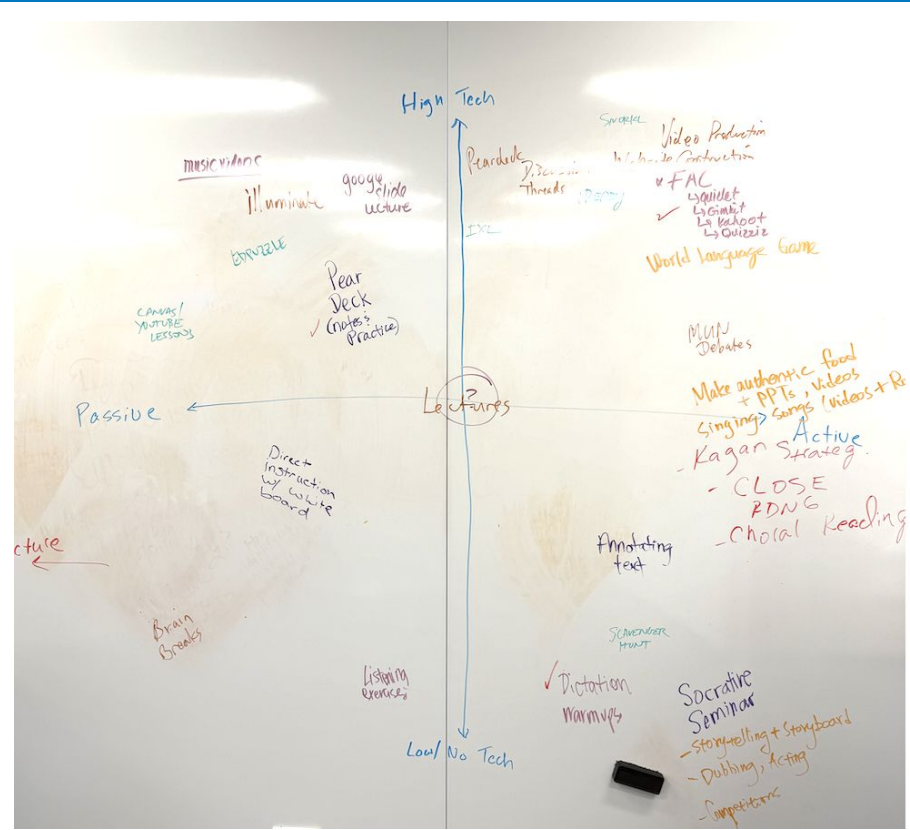 High Tech
music videos
illuminate
google
slide
lecture
EDPUZZLE
Pear
Deck
(notes &
Practice)
CANVAS/
YOUTUBE
LESSONS
Peardeck
Discussion
Threads
IXL
Video Production
Website Construction
FAC
↳ Quizlet
↳ Gimkit
↳ Kahoot
↳ Quizziz
World Language Game
MUN
Debates
Make authentic food
+ PPTs, Videos
Singing > Songs (videos + R
Passive
Lectures
?
Active
- Kagan Strateg.
- CLOSE
RDNG
- Choral Reading
Direct
instruction
w/ white
board
cture
Brain
Breaks
Listening
exercises
Annotating
text
SCAVENGER
HUNT
Dictation
Warmups
Socrative
Seminar
- Storytelling + Storyboard
- Dubbing, Acting
- Competitions
Low/No Tech